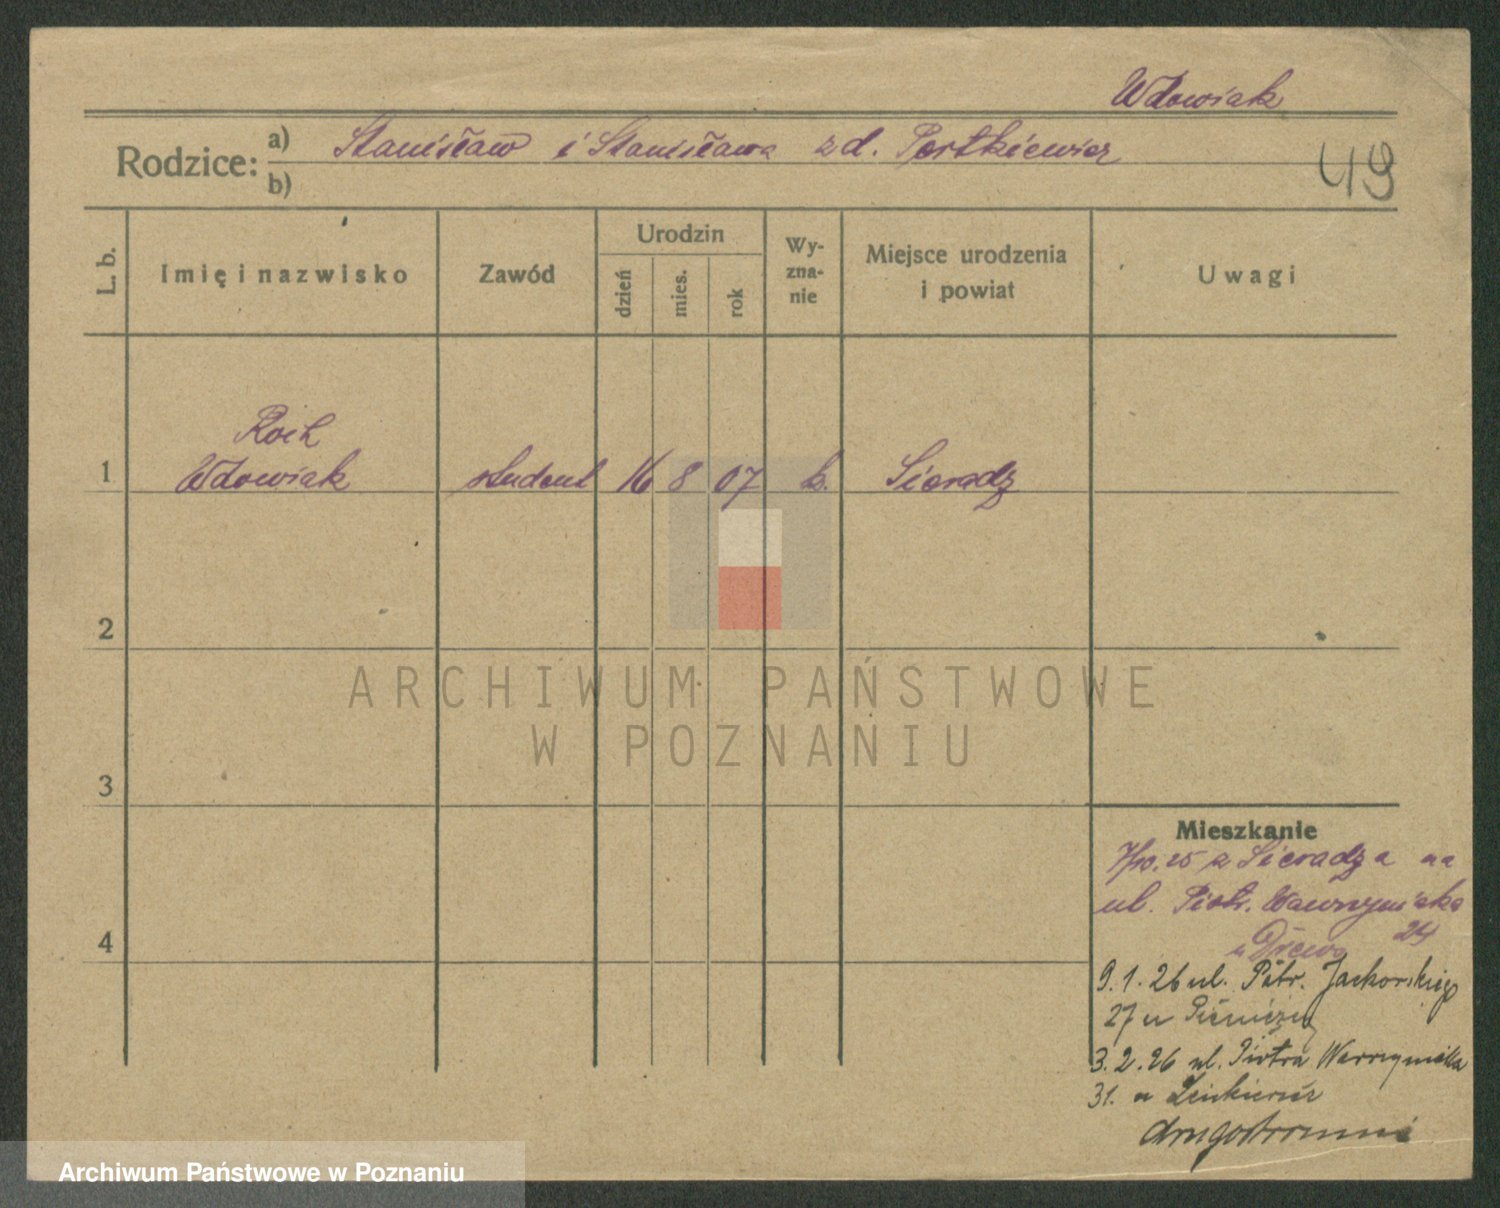 Wdowiak
Rodzice: a) Stanisław i Stanisława z d. Portkiewicz
b)
49
L. b.
Imię i nazwisko
Zawód
Urodzin
dzień
mies.
rok
Wy-
zna-
nie
Miejsce urodzenia
i powiat
Uwagi
Roch
1 Wdowiak student 16 8 07 k. Sieradz
2
3
4
ARCHIWUM PAŃSTWOWE
W POZNANIU
Mieszkanie
7/10.25 z Sieradza na
ul. Piotr. Wawrzyniaka
24
9.1.26 ul. Piotr. Jackowskiego
27 u
3.2.26 ul. Piotra Wawrzyniaka
31. u
drugostronnie
Archiwum Państwowe w Poznaniu